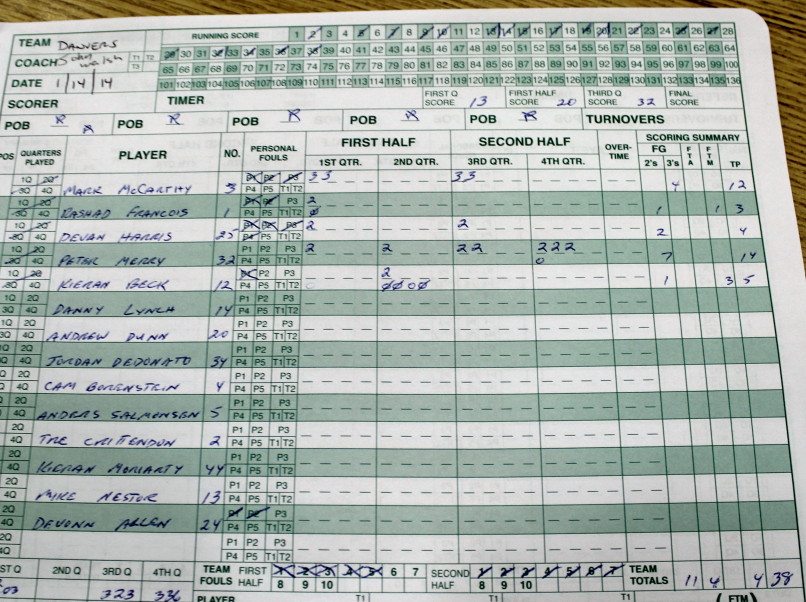 TEAM DANVERS RUNNING SCORE 1 2 3 4 5 6 7 8 9 10 11 12 13 14 15 16 17 18 19 20 21 22 23 24 25 26 27 28
COACH John Walsh T1 T2 T3 29 30 31 32 33 34 35 36 37 38 39 40 41 42 43 44 45 46 47 48 49 50 51 52 53 54 55 56 57 58 59 60 61 62 63 64
65 66 67 68 69 70 71 72 73 74 75 76 77 78 79 80 81 82 83 84 85 86 87 88 89 90 91 92 93 94 95 96 97 98 99 100
DATE 1/14/14 101 102 103 104 105 106 107 108 109 110 111 112 113 114 115 116 117 118 119 120 121 122 123 124 125 126 127 128 129 130 131 132 133 134 135 136
SCORER TIMER FIRST Q SCORE 13 FIRST HALF SCORE 20 THIRD Q SCORE 32 FINAL SCORE
POB R R POB R POB R POB R POB R TURNOVERS
POS QUARTERS PLAYED PLAYER NO. PERSONAL FOULS FIRST HALF SECOND HALF OVER-TIME SCORING SUMMARY
1ST QTR. 2ND QTR. 3RD QTR. 4TH QTR. FG 2's 3's FTA FTM TP
1Q 2Q P1 P2 P3 3 3 3 3
3Q 4Q MARK McCARTHY 3 P4 P5 T1 T2 4 12
1Q 2Q P1 P2 P3 2
3Q 4Q RASHAD FRANCOIS 1 P4 P5 T1 T2 1 1 3
1Q 2Q P1 P2 P3 2 2
3Q 4Q DEVAN HARRIS 25 P4 P5 T1 T2 2 4
1Q 2Q P1 P2 P3 2 2 2 2 2 2 2
3Q 4Q PETER MERRY 32 P4 P5 T1 T2 0 7 14
1Q 2Q P1 P2 P3 2
3Q 4Q KIERAN BECK 12 P4 P5 T1 T2 0 0 0 0 1 3 5
1Q 2Q P1 P2 P3
3Q 4Q DANNY LYNCH 14 P4 P5 T1 T2
1Q 2Q P1 P2 P3
3Q 4Q ANDREW DUNN 20 P4 P5 T1 T2
1Q 2Q P1 P2 P3
3Q 4Q JORDAN DEDONATO 34 P4 P5 T1 T2
2Q P1 P2 P3
4Q CAM BORENSTEIN 4 P4 P5 T1 T2
2Q P1 P2 P3
4Q ANDERS SALMONSEN 5 P4 P5 T1 T2
2Q P1 P2 P3
4Q TRE CRITTENDON 2 P4 P5 T1 T2
2Q P1 P2 P3
4Q KIERAN MORIARTY 44 P4 P5 T1 T2
2Q P1 P2 P3
4Q MIKE NESTOR 13 P4 P5 T1 T2
2Q P1 P2 P3
4Q DEVONN ALLEN 24 P4 P5 T1 T2
2Q P1 P2 P3
4Q P4 P5 T1 T2
ST Q 2ND Q 3RD Q 4TH Q TEAM FOULS FIRST HALF 1 2 3 4 5 6 7 8 9 10 SECOND HALF 1 2 3 4 5 6 7 8 9 10 TEAM TOTALS 11 4 4 38
323 336 PLAYER T1 T1 (FTM)